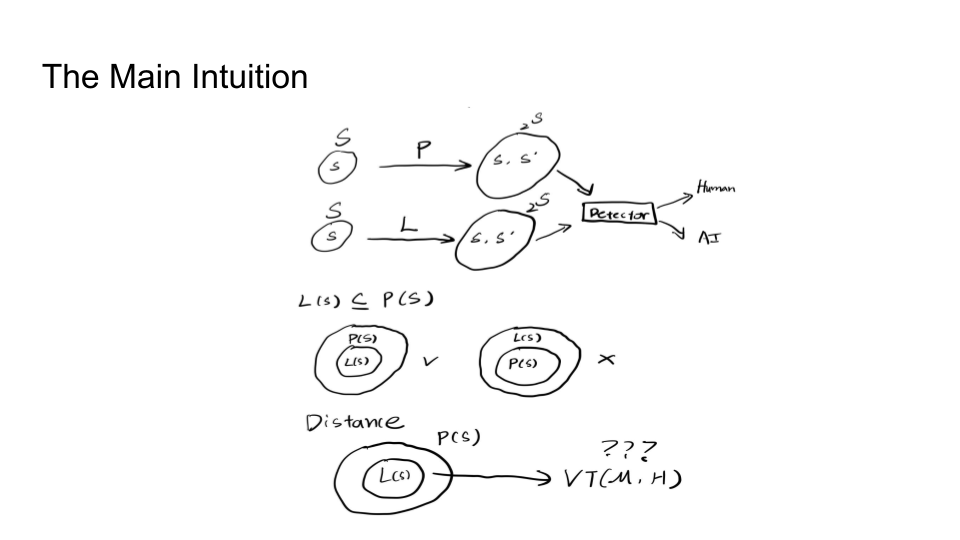 The Main Intuition
S
s
P
2^S
s, s'
S
s
L
2^S
s, s'
Detector
Human
AI
L(s) ⊆ P(S)
P(S)
L(s)
✓
L(s)
P(s)
×
Distance
P(S)
L(s)
???
VT(M, H)